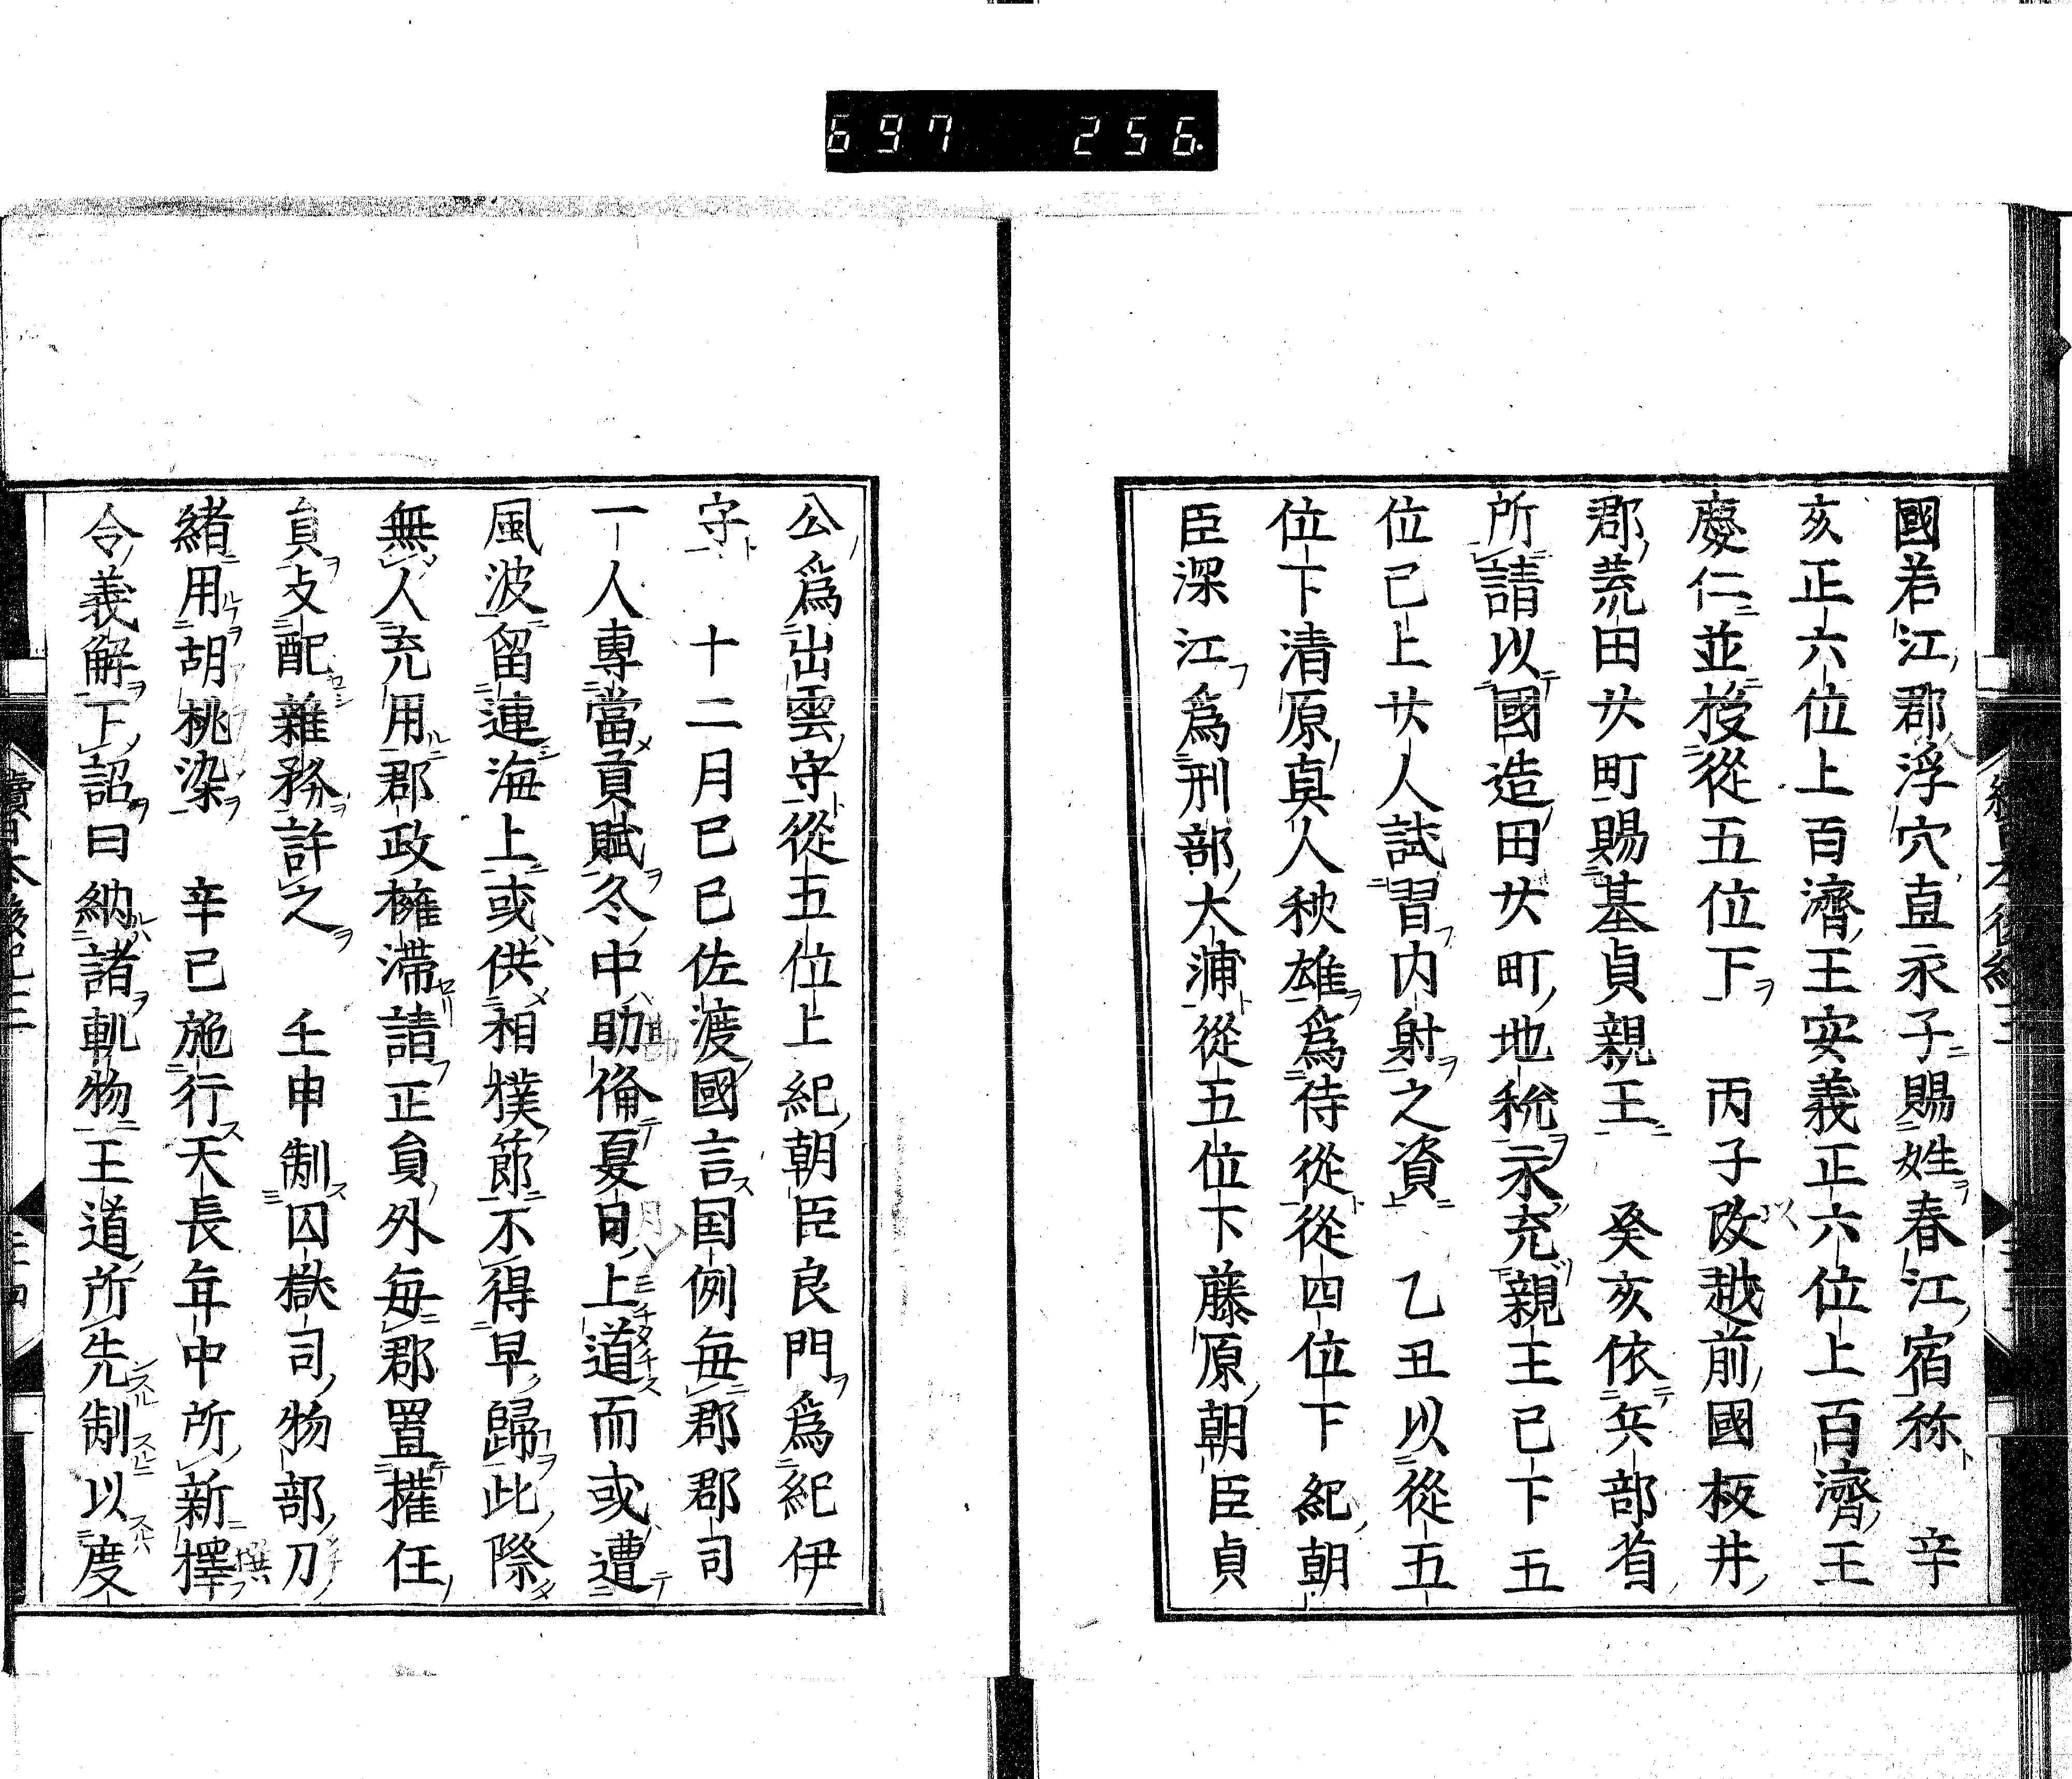 697 256.
國若江郡浮穴直永子賜姓春江宿祢 辛
亥正六位上百濟王安義正六位上百濟王
慶仁並授從五位下 丙子改越前國坂井
郡荒田廿町賜基貞親王 癸亥依兵部省
所請以國造田廿町地税永充親王已下五
位已上廿人試習内射之資 乙丑以從五
位下清原真人秋雄爲侍從從四位下紀朝
臣深江爲刑部大輔從五位下藤原朝臣貞
公爲出雲守從五位上紀朝臣良門爲紀伊
守 十二月己巳佐渡國言国例毎郡郡司
一人專當貢賦冬中勘備夏月上道而或遭
風波留連海上或供相撲節不得早歸此際
無人充用郡政擁滯請正員外毎郡置權任
員攴配雜務許之 壬申制囚獄司物部刀
緒用胡桃染 辛巳施行天長年中所新擇
令義解下詔曰納諸軌物王道所先制以度